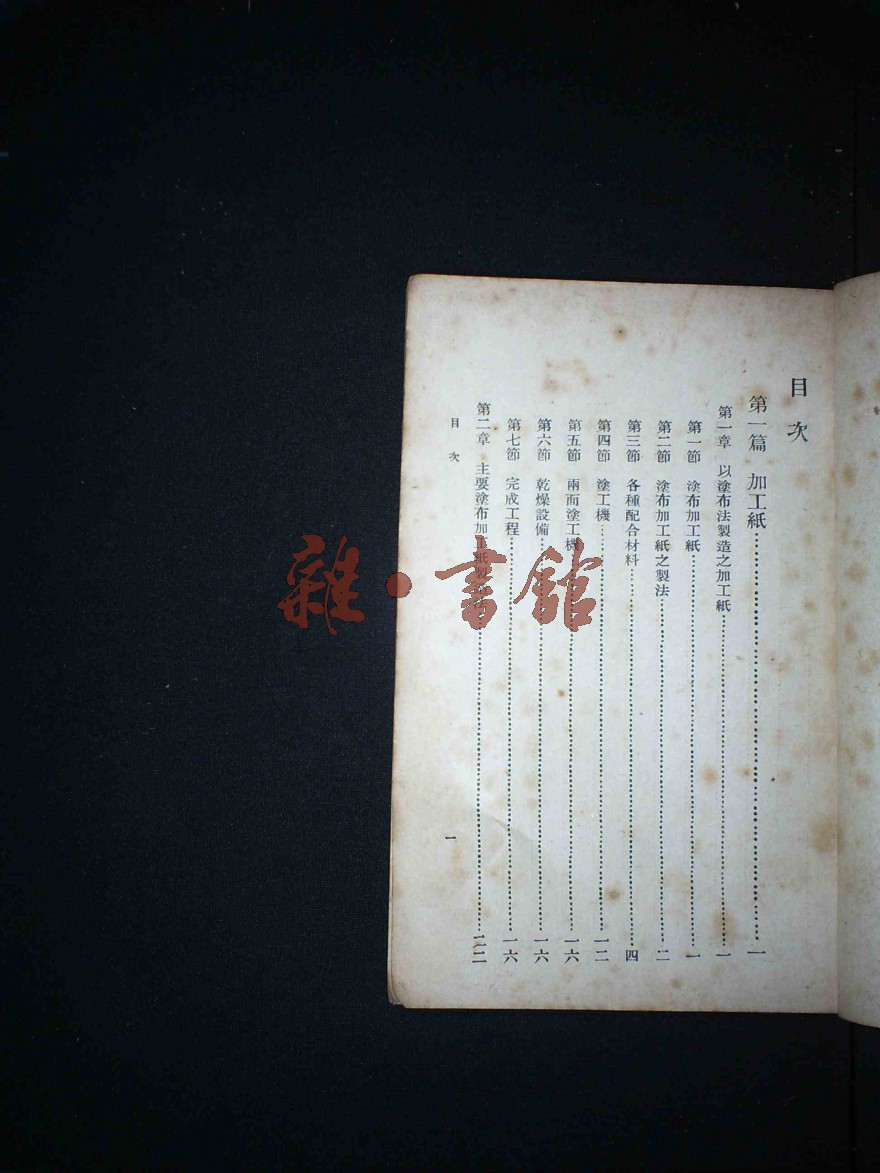 目次
第一篇 加工紙……一
第一章 以塗布法製造之加工紙……一
第一節 塗布加工紙……一
第二節 塗布加工紙之製法……二
第三節 各種配合材料……四
第四節 塗工機……一二
第五節 兩面塗工機……一六
第六節 乾燥設備……一六
第七節 完成工程……一六
第二章 主要塗布加工紙製……二二
目次
一
雜·書館